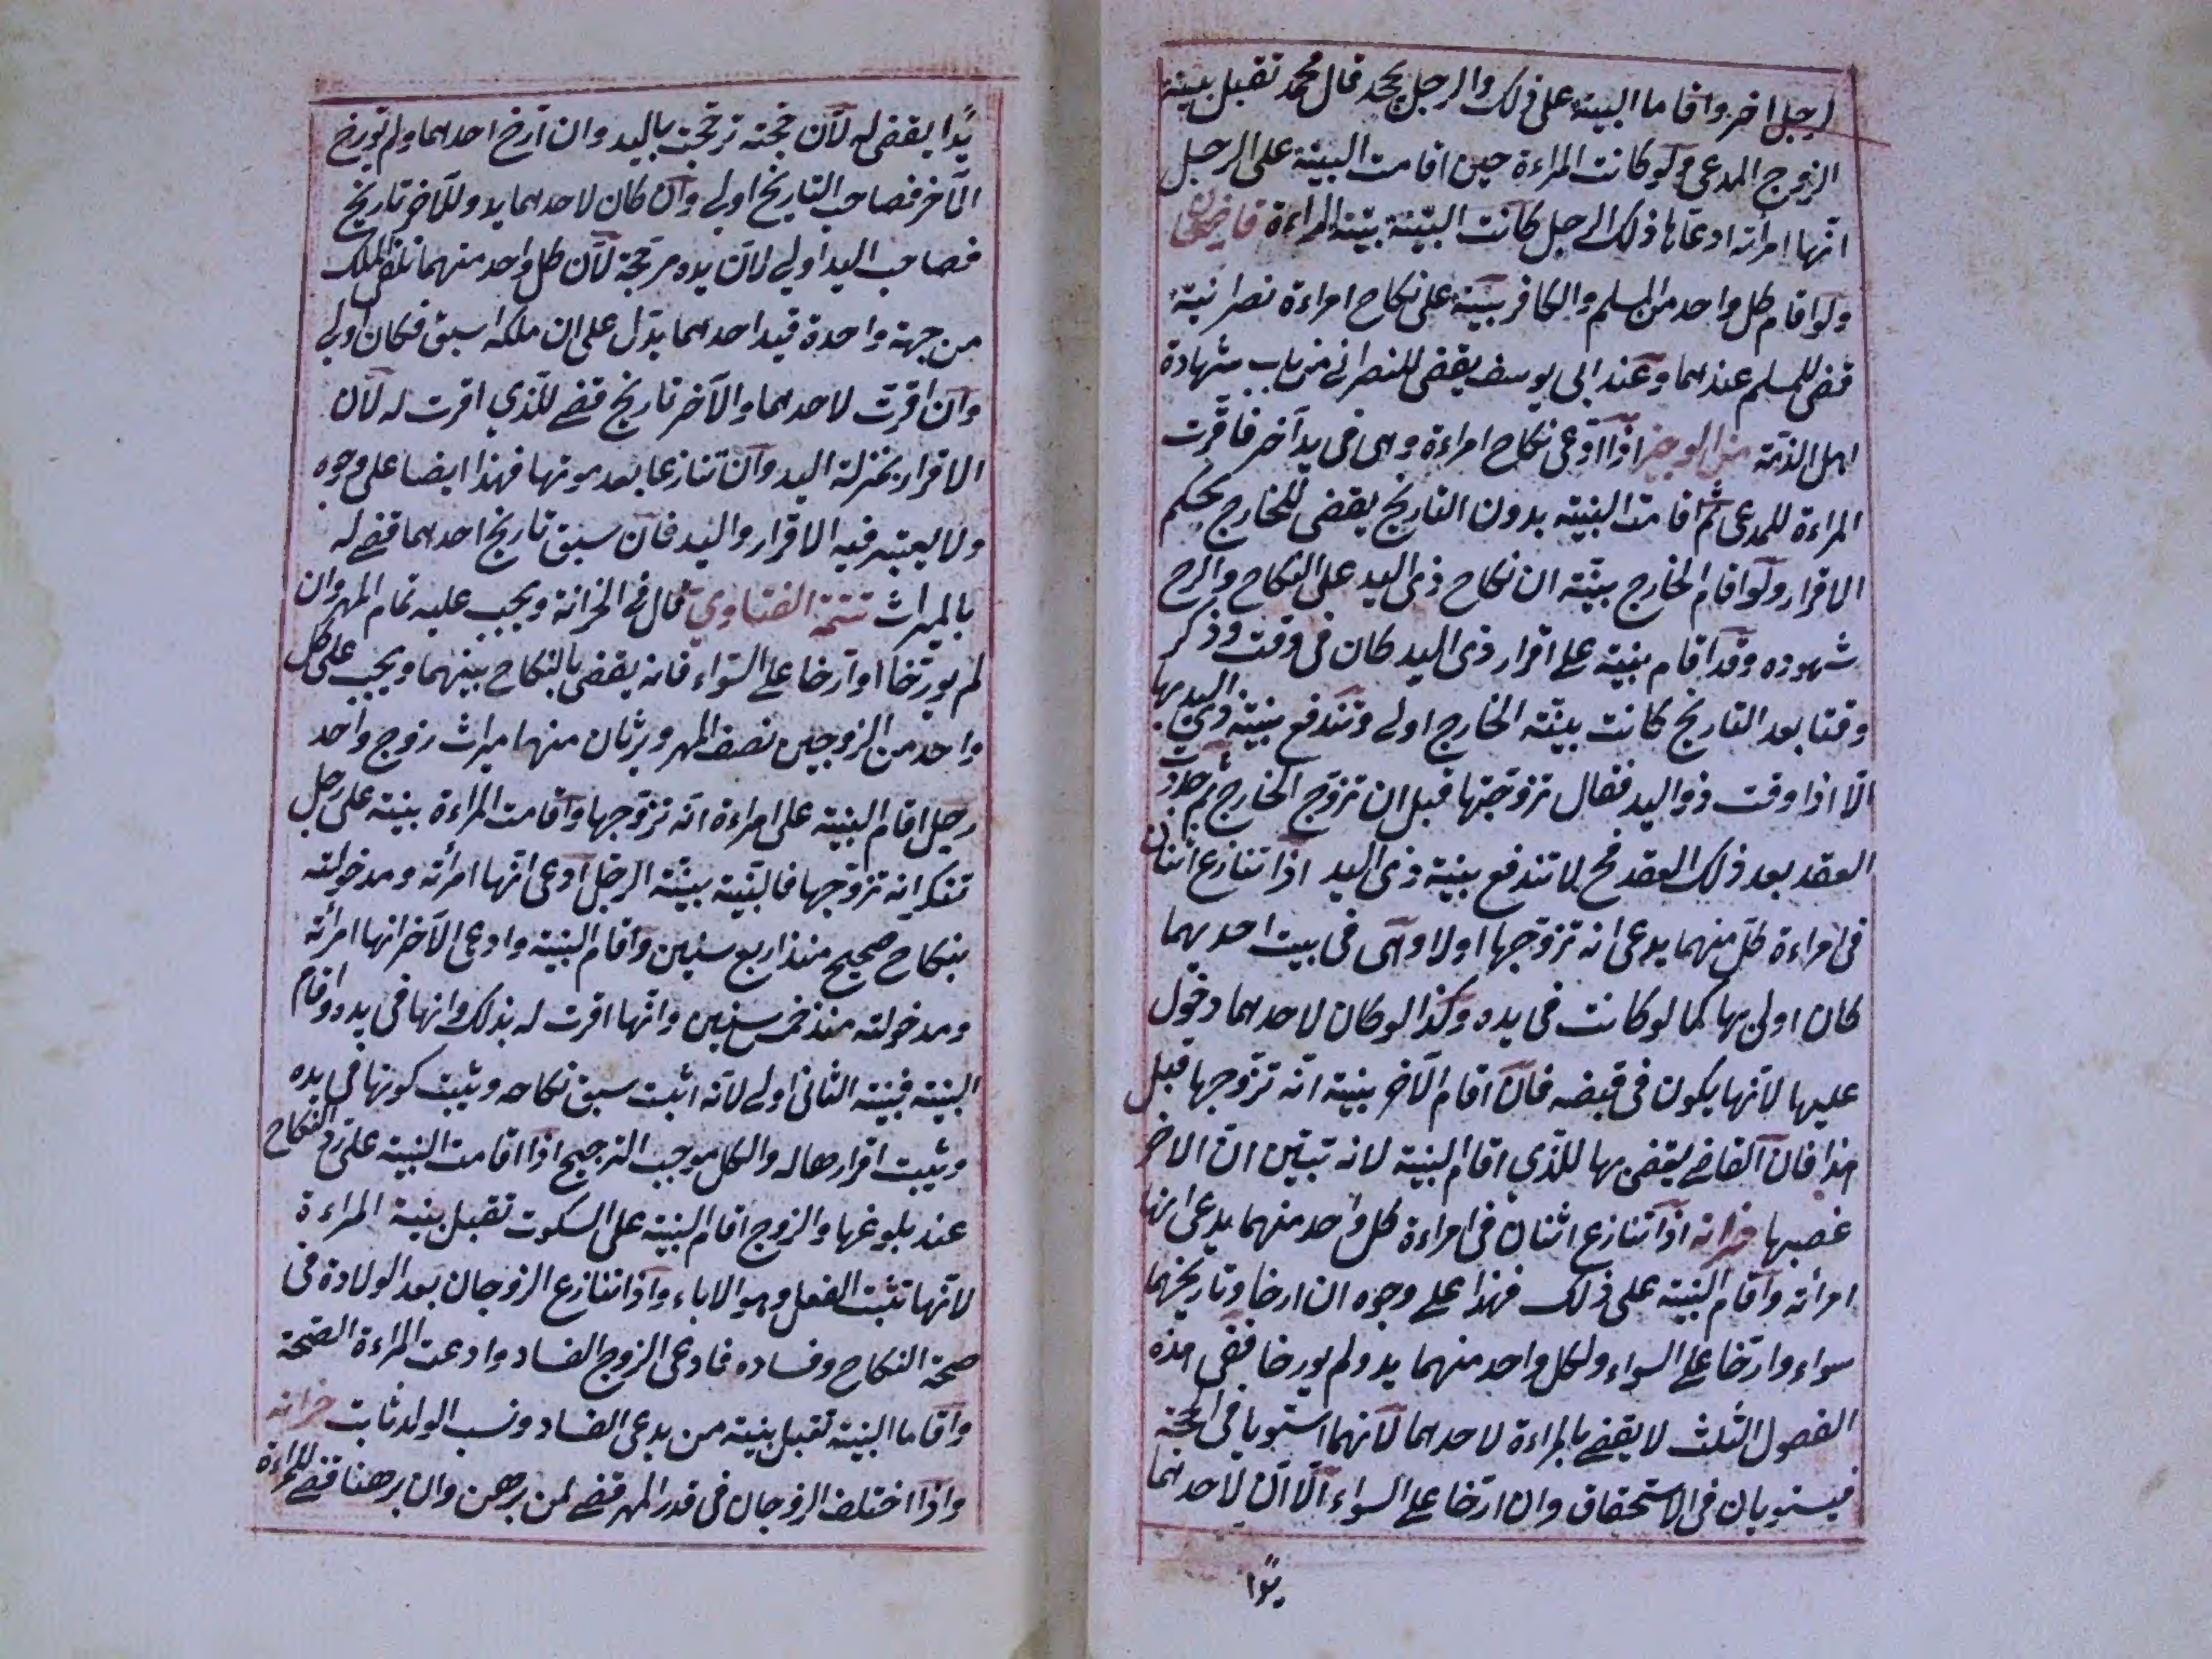 لرجل اخر واقاما البينة على ذلك والرجل يجحد قال محمد تقبل بينة
الزوج المدعى ولو كانت المراءة حين اقامت البينة على الرجل
انها امرأته ادعاها ذلك الرجل كانت البينة بينة المراءة قاضيخان
ولو اقام كل واحد من المسلم والكافر بينة على نكاح امراءة نصرانية
قضى للمسلم عندهما وعند ابى يوسف يقضى للنصرانے من باب شهادة
اهل الذمة من الوجيز اذا ادعى نكاح امراءة وهى فى يد آخر فاقرت
المراءة للمدعى ثم اقامت البينة بدون التاريخ يقضى للخارج بحكم
الاقرار ولو اقام الخارج بينة ان نكاح ذى اليد على النكاح وارخ
شهوده وقد اقام بينة على اقرار ذى اليد كان فى وقت وذكر
وقتا بعد التاريخ كانت بينة الخارج اولے وتندفع بينة ذى اليد بها
الا اذا وقت ذو اليد فقال تزوجتها قبل ان تزوج الخارج ثم جددت
العقد بعد ذلك العقد فح لا تندفع بينة ذى اليد اذا تنازع اثنان
فى امراءة كل منهما يدعى انه تزوجها اولا وهى فى بيت احديهما
كان اولى بها كما لو كانت فى يده وكذا لو كان لاحدهما دخول
عليها لانها يكون فى قبضه فان اقام الآخر بينة انه تزوجها قبل
هذا فان القاضے يقضى بها للذي اقام البينة لانه تبين ان الاخر
غصبها خزانه اذا تنازع اثنان فى امراءة كل واحد منهما يدعى انها
امرأته واقام البينة على ذلك فهذا على وجوه ان ارخا وتاريخهما
سواء وارخا على السواء ولكل واحد منهما يد ولم يورخا ففى هذه
الفصول الثلث لا يقضے بالمراءة لاحدهما لانهما استويا فى الحجة
فيستويان فى الاستحقاق وان ارخا على السواء الا ان لاحدهما
يدًا
يدًا يقضى له لان حجته ترجحت باليد وان ارخ احدهما ولم يورخ
الآخر فصاحب التاريخ اولے وان كان لاحدهما يد وللآخر تاريخ
فصاحب اليد اولے لان يده مرجحة لان كل واحد منهما تلقى الملك
من جهة واحدة فيد احدهما يدل على ان ملكه اسبق فكان اولے
وان اقرت لاحدهما والآخر تاريخ قضے للذي اقرت له لان
الاقرار بمنزلة اليد وان تنازعا بعد موتها فهذا ايضا على وجوه
ولا يعتبر فيه الاقرار واليد فان سبق تاريخ احدهما قضے له
بالميراث تتمة الفتاوي قال فے الخزانة ويجب عليه تمام المهر وان
لم يورخا او ارخا على السواء فانه يقضى بالنكاح بينهما ويجب على كل
واحد من الزوجين نصف المهر ويرثان منها ميراث زوج واحد
رجل اقام البينة على امراءة انه تزوجها واقامت المراءة بينة على رجل
تنكر انه تزوجها فالبينة بينة الرجل ادعى انها امرأته ومدخولته
بنكاح صحيح منذ اربع سنين واقام البينة وادعى الآخر انها امرأته
ومدخولته منذ خمس سنين وانها اقرت له بذلك وانها فى يده واقام
البينة فبينة الثانى اولے لانه اثبت سبق نكاحه ويثبت كونها فى يده
ويثبت اقرارها له والكل موجب الترجيح اذا اقامت البينة على رد النكاح
عند بلوغها والزوج اقام البينة على السكوت تقبل بينة المراءة
لانها تثبت الفعل وهو الاباء واذا تنازع الزوجان بعد الولادة فى
صحة النكاح وفساده فادعى الزوج الفساد وادعت المراءة الصحة
واقاما البينة تقبل بينة من يدعى الفساد ونسب الولد ثابت خزانه
واذا اختلف الزوجان فى قدر المهر قضے لمن برهن وان برهنا قضے للمراءة